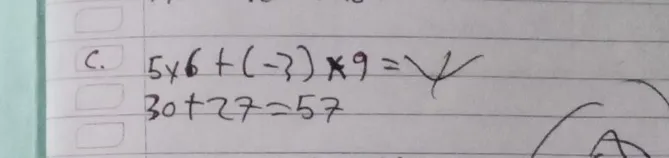 c. 5x6+(-3)x9=
30+27=57